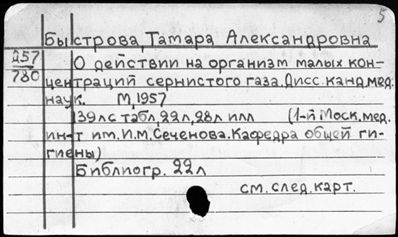 5
Быстрова, Тамара Александровна
257
780
О действии на организм малых кон-
центраций сернистого газа. Дисс. канд. мед.
наук. М, 1957
139 лс табл, 22 л, 28 л илл (1-й Моск. мед.
ин-т им. И.М. Сеченова. Кафедра общей ги-
гиены)
Библиогр. 22 л
см. след. карт.